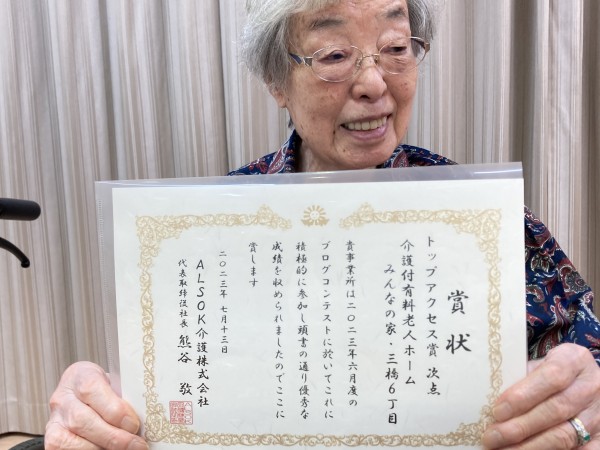 賞状
トップアクセス賞 次点
介護付有料老人ホーム
みんなの家・三橋6丁目
貴事業所は二〇二三年六月度の
ブログコンテストに於いてこれに
積極的に参加し頭書の通り優秀な
成績を収められましたのでここに
賞します
二〇二三年 七月十三日
ALSOK介護株式会社
代表取締役社長 熊谷 敬